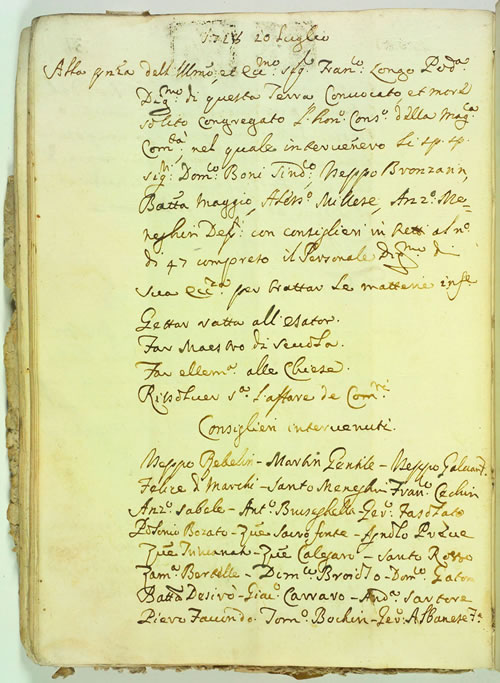 1728 20 Luglio
Alla pnza dell Illmo, et Ecc.mo Sig.r Franc.o Longo Pod.a
Dig.mo di questa Terra Convocato, et more
solito congregato l'hon. Cons.o della Mag.ca
Com.tà, nel quale intervenero li sp. sp.
sig.ri Dom.co Boni Sind.co, Neppo Bronzarin,
Batta Maggio, Milese, Anz.o Me-
neghin Dep.i con consiglieri in tutti al n.o
di 47 compreso il Personale Dig.mo di
Sua Ecc.za per trattar le matterie inf.e
Gettar ratta all'esator.
Far Maestro di Scuola.
Far ellem.a alle Chiese.
Rissoluer s.a l'affare de Com.ni
Consiglieri intervenuti.
Neppo Bebelin - Martin Gentile - Neppo Galuan
Felice di Marchi - Santo Meneghin Fran.co Cechin
Anz.o Sabele - Ant.o Buseghello - Fasolato
Bozato - Zuē Sacro fonte -
Zuē - Zuē Calegari - Santo Rosso
Zam.a Bertelle - Dom.co - Dom.co Gaton
Batta Desiro - Giac.o Carraro - And.a Sartore
Piero Facundo. Tom.o Bochin - Albanese